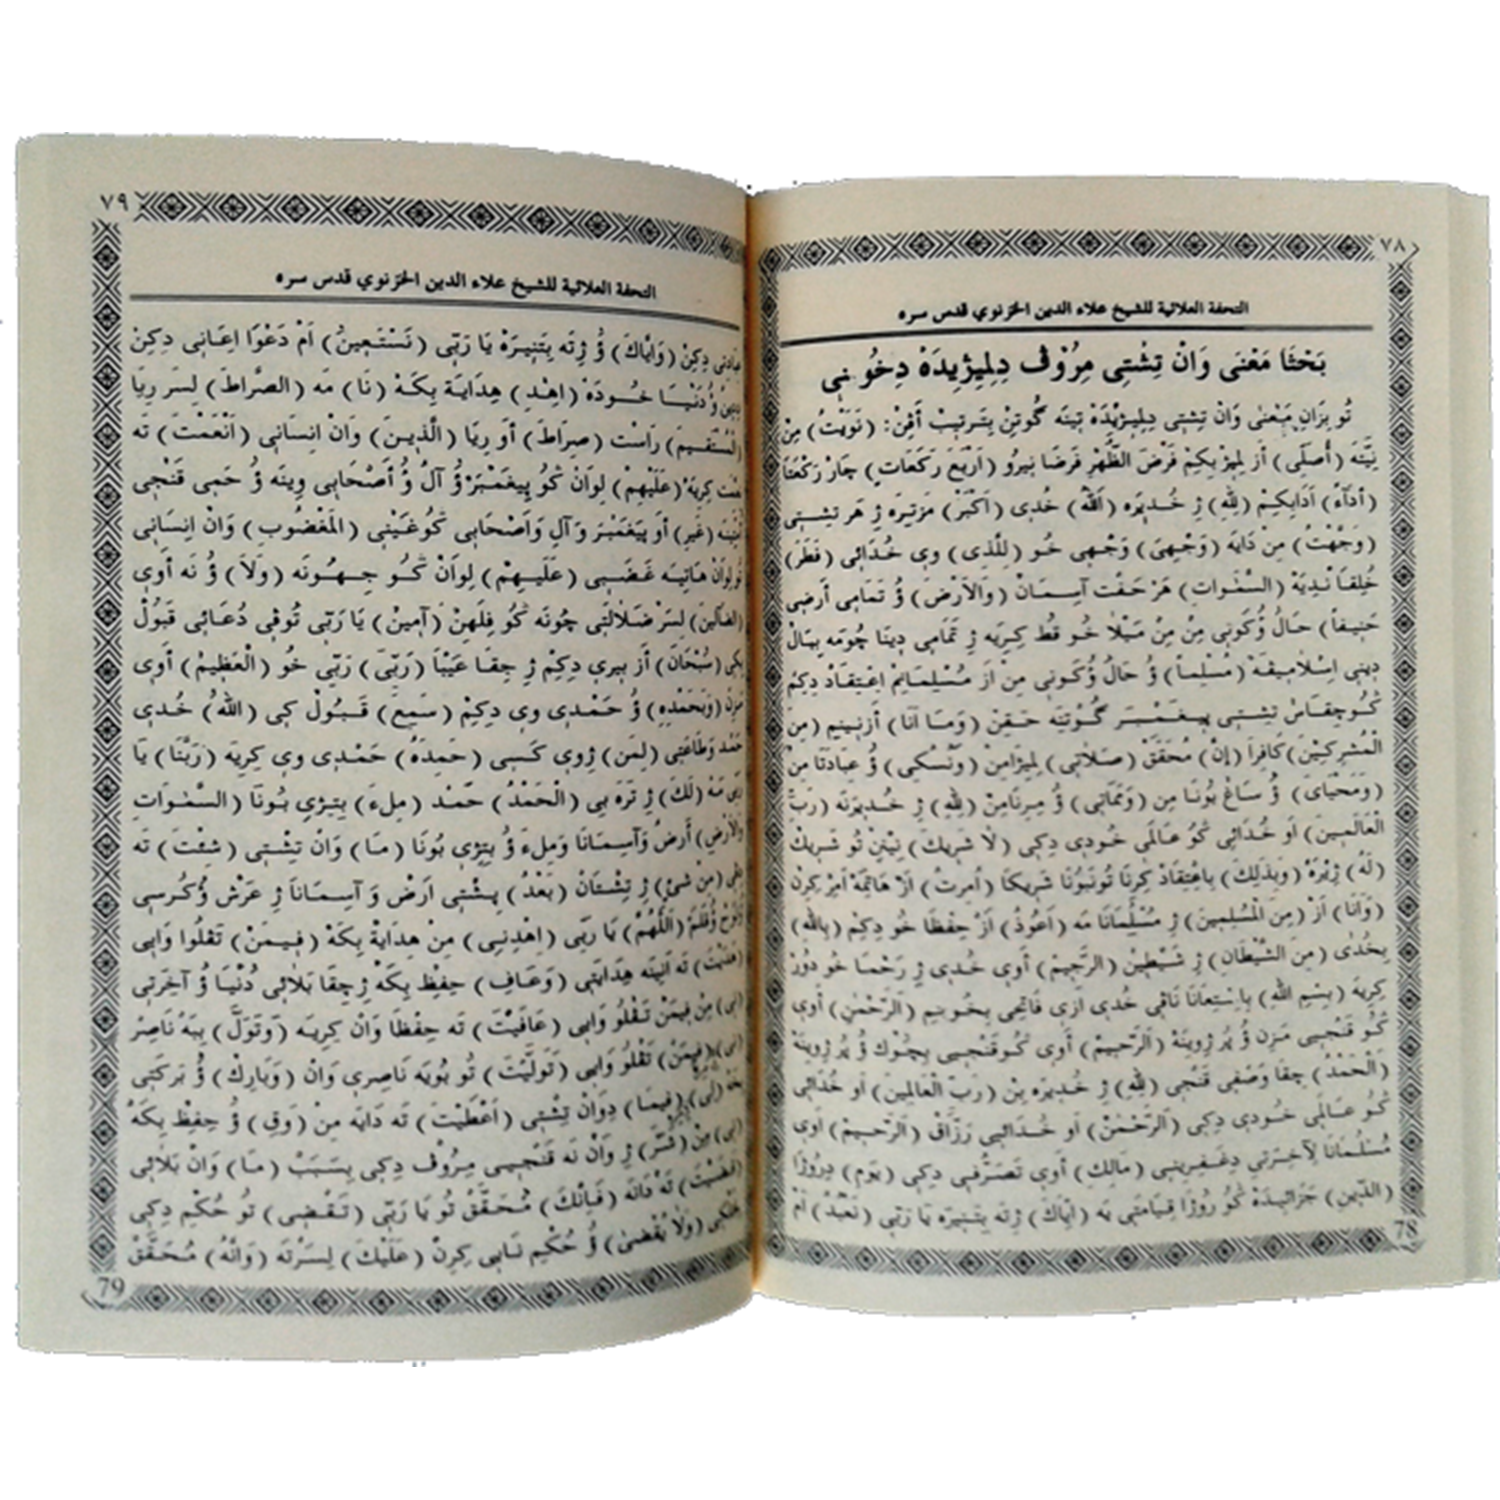 ٧٨
التحفة العلائية للشيخ علاء الدين الخزنوي قدس سره
بَحْثَا مَعْنَى وَانْ تِشْتِى مِرُوْڤ دِلِمِيْژِيدَهْ دِخُو نِى
تُو بِزَانِ مَعْنَى وَانْ تِشْتِى دِلِمِيْژِيْدَهْ تِينَه گُوتِنْ بِتَرتِيبْ اَڤِنْ: (نَوَيْتُ) مِنْ
نِيَّتَه (أُصَلِّى) أَز لِمِيْژ بِكِمْ فَرْضَ الظُّهْرِ فَرضَا نِيرُو (اَرْبَعَ رَكَعَاتٍ) چَارْ رَكْعَتَا
(أدَآءً) اَدَابِكِمْ (لِلّٰهِ) ژِ خُدِيْرَه (اَللّٰهُ) خُدِى (اَكْبَرْ) مَزِتِرَه ژِ هَر تِشْتِى
(وَجَّهْتُ) مِنْ دَايَه (وَجْهِىَ) وَجْهِى خُو (لِلَّذِى) وِى خُدَائِى (فَطَرَ)
خُلِقَانْدِيَهْ (السَّمٰوَاتِ) هَرْ حَفْت آسِمَانْ (وَالْاَرْضَ) وُ تَمَامِى اَرْضِى
(حَنِيفاً) حَالُ وُكَونِى مِنْ مِنْ مَيْلاَ خُو قَط كِرِيَه ژِ تَمَامِى دِينَا چُومَه بِيَالْ
دِينِى اِسْلَامِيڤَهْ (مُسْلِماً) وُ حَالُ وُكَونِى مِنْ اَز مُسْلِمَانِمْ اِعْتِقَادْ دِكِمْ
كُو چِقَاسْ تِشْتِى پِيغَمْبَر گُوتِيَه حَقِنْ (وَمَا اَنَا) أَزنِينِمْ (مِنَ
الْمُشْرِكِيْنَ) كَافِرَا (إِنَّ) مُحَقَّقْ (صَلَاتِى) لِمِيژَامِنْ (وَنُسُكِى) وُ عِبَادَتَا مِنْ
(وَمَحْيَاىَ) وُ سَاغْ بُونَا مِن (وَمَمَاتِى) وُ مِرِنَامِنْ (لِلّٰهِ) ژِ خُدِيْرَنَه (رَبِّ
الْعَالَمِينَ) اَو خُدَائِى كُو عَالَمِى خُودِى دِكِى (لاَ شَرِيكَ) نِينِنْ تُو شَرِيكْ
(لَهُ) ژِيْرَهْ (وَبِذٰلِكَ) بِاعْتِقَادْ كِرِنَا تُونَبُونَا شَرِيكَا (اُمِرْتُ) اَزْ هَاتِمَهْ اَمِرْ كِرِنْ
(وَاَنَا) اَزْ (مِنَ الْمُسْلِمِينَ) ژِ مُسْلِمَانَا مَه (اَعُوذُ) اَزْ حِفْظَا خُو دِكِمْ (بِاللّٰهِ)
بِخُدىٰ (مِنَ الشَّيْطَانِ) ژِ شَيْطِينْ (الرَّجِيمْ) أَوِى خُدِى ژِ رَحْمَا خُو دُوْرْ
كِرِيَه (بِسْمِ اللّٰهِ) بِاِسْتِعَانَا نَاڤِى خُدِى اَزِى فَاتِحِى بِخُوينِمْ (الرَّحْمٰنِ) أَوِى
كُو قَنْجِيى مَزِن وُ پُر ژِوِينَهْ (اَلرَّحِيمْ) أَوِى كُوقَنْجِيى بِچُوْك وُ پُر ژِوِينَهْ
(اَلْحَمْدُ) چِقَا وَصْفِى قَنْجِى (لِلّٰهِ) ژِ خُدِيْرَه بِنْ (رَبِّ الْعَالَمِينَ) اَو خُدَائِى
كُو عَالَمِى خُودِى دِكِى (اَلرَّحْمٰنْ) اَو خُدَائِيى رَزَّاقْ (اَلرَّحِيمْ) اَوِى
مُسُلْمَانَا لِآخِرَتِى دِغَفِرِينِى (مَالِكِ) أَوِى تَصَرُّفِى دِكِى (يَوْمِ) دِرُوژَا
(الدِّينِ) جَزَائِيدَهْ كُو رُوژَا قِيَامَتِى يَه (اِيَّاكَ) ژِتَه بِتَنِيرَه يَا رَبِّى (نَعْبُدُ) اَمْ
78
٧٩
التحفة العلائية للشيخ علاء الدين الخزنوي قدس سره
عِبَادَتِى دِكِنْ (وَاِيَّاكَ) وُ ژِتَه بِتَنِيرَهْ يَا رَبِّى (نَسْتَعِينُ) اَمْ دَعْوَا اِعَانِى دِكِنْ
وُ دُنْيَا خُودَهْ (اِهْدِ) هِدَايَة بِكَهْ (نَا) مَه (الصِّرَاطَ) لِسَر رِيَا
(الْمُسْتَقِيمَ) رَاسْت (صِرَاطَ) أَو رِيَا (الَّذِينَ) وَانْ اِنسَانِى (اَنْعَمْتَ) تَه
كِرِيَهْ (عَلَيْهِمْ) لِوَانْ كُو پِيغَمْبَرْ وُ آلْ وُ أَصْحَابِى وِينَه وُ حَمِى قَنْجِى
(غَيرِ) أَو پَيغَمْبَر وَ آلِ وَاَصْحَابِى كُوغَيْنِى (الْمَغْضُوبِ) وَانْ اِنِسَانِى
لِوَانْ هَاتِيَه غَضَبِى (عَلَيْهِمْ) لِوَانْ كُو جِهُونَه (وَلَا) وُ نَه أَوِى
(الضَّآلِّينَ) لِسَرْ ضَلَالَتِى چُونَه كُو فِلَهِنْ (آمِينْ) يَا رَبِّى تُوڤِى دُعَائِى قَبُولْ
بِكِى (سُبْحَانَ) أَز بِيرِى دِكِمْ ژِ چِقَا عَيْبَا (رَبِّىَ) رَبِّى خُو (الْعَظِيمْ) أَوِى
مَزِنْ (وَبِحَمْدِهِ) وُ حَمْدِى وِى دِكِمْ (سَمِعَ) قَبُولْ كِى (اللّٰهُ) خُدِى
حَمْد وَطَاعَتِى (لِمَن) ژِوِى كَسِى (حَمِدَهُ) حَمْدِى وِى كِرِيَه (رَبَّنَا) يَا
رَبِّى مَهْ (لَكَ) ژِ تَرَه بِى (الْحَمْدُ) حَمْد (مِلءَ) بِتِژِى بُونَا (السَّمٰوَاتِ
وَالْاَرْضِ) أَرضُ وَآسِمَانَا وَمِلءَ وُ بِتِژِى بُونَا (مَا) وَانْ تِشْتِى (شِئْتَ) تَه
(مِن شَىْءٍ) ژِ تِشْتَانْ (بَعْدُ) پِشْتِى اَرضْ وَ آسِمَانَا ژِ عَرْش وُكُرسِى
وُقَلَمْ (اَللّٰهُمَّ) يَا رَبِّى (اِهْدِنِى) مِنْ هِدَايَهْ بِكَهْ (فِيمَنْ) تَڤْلُوا وَابِى
(هَدَيْتَ) تَه اَنِينَه هِدَايَتِى (وَعَافِ) حِفِظْ بِكَهْ ژِ چِقَا بَلَائِى دُنْيَا وُ آخِرَتِى
مِنْ فِيمَنْ تَڤْلُو وَابِى (عَافَيْتَ) تَه حِفِظَا وَانْ كِرِيَه (وَتَوَلَّ) بِبَهْ نَاصِرْ
(فِيمَنْ) تَڤْلُو وَابِى (تَوَلَّيْتَ) تُو بُويَه نَاصِرِى وَانْ (وَبَارِكْ) وُ بَرَكَتِى
(فِيمَا) دِوَانْ تِشْتِى (اَعْطَيْتَ) تَه دَايَه مِنْ (وَقِ) وُ حِفِظْ بِكَهْ
(شَرَّ) ژِ وَانْ نَه قَنْجِيىِ مِرُوڤ دِكِى بِسَبَبْ (مَا) وَانْ بَلَائِى
(قَضَيْتَ) تَه دَانَه (فَاِنَّكَ) مُحَقَّقْ تُو يَا رَبِّى (تَقْضِى) تُو حُكْمْ دِكِى
(وَلَا يُقْضٰى) وُ حُكْمْ نَابِى كِرِنْ (عَلَيْكَ) لِسَرْتَه (وَاِنَّهُ) مُحَقَّقْ
79